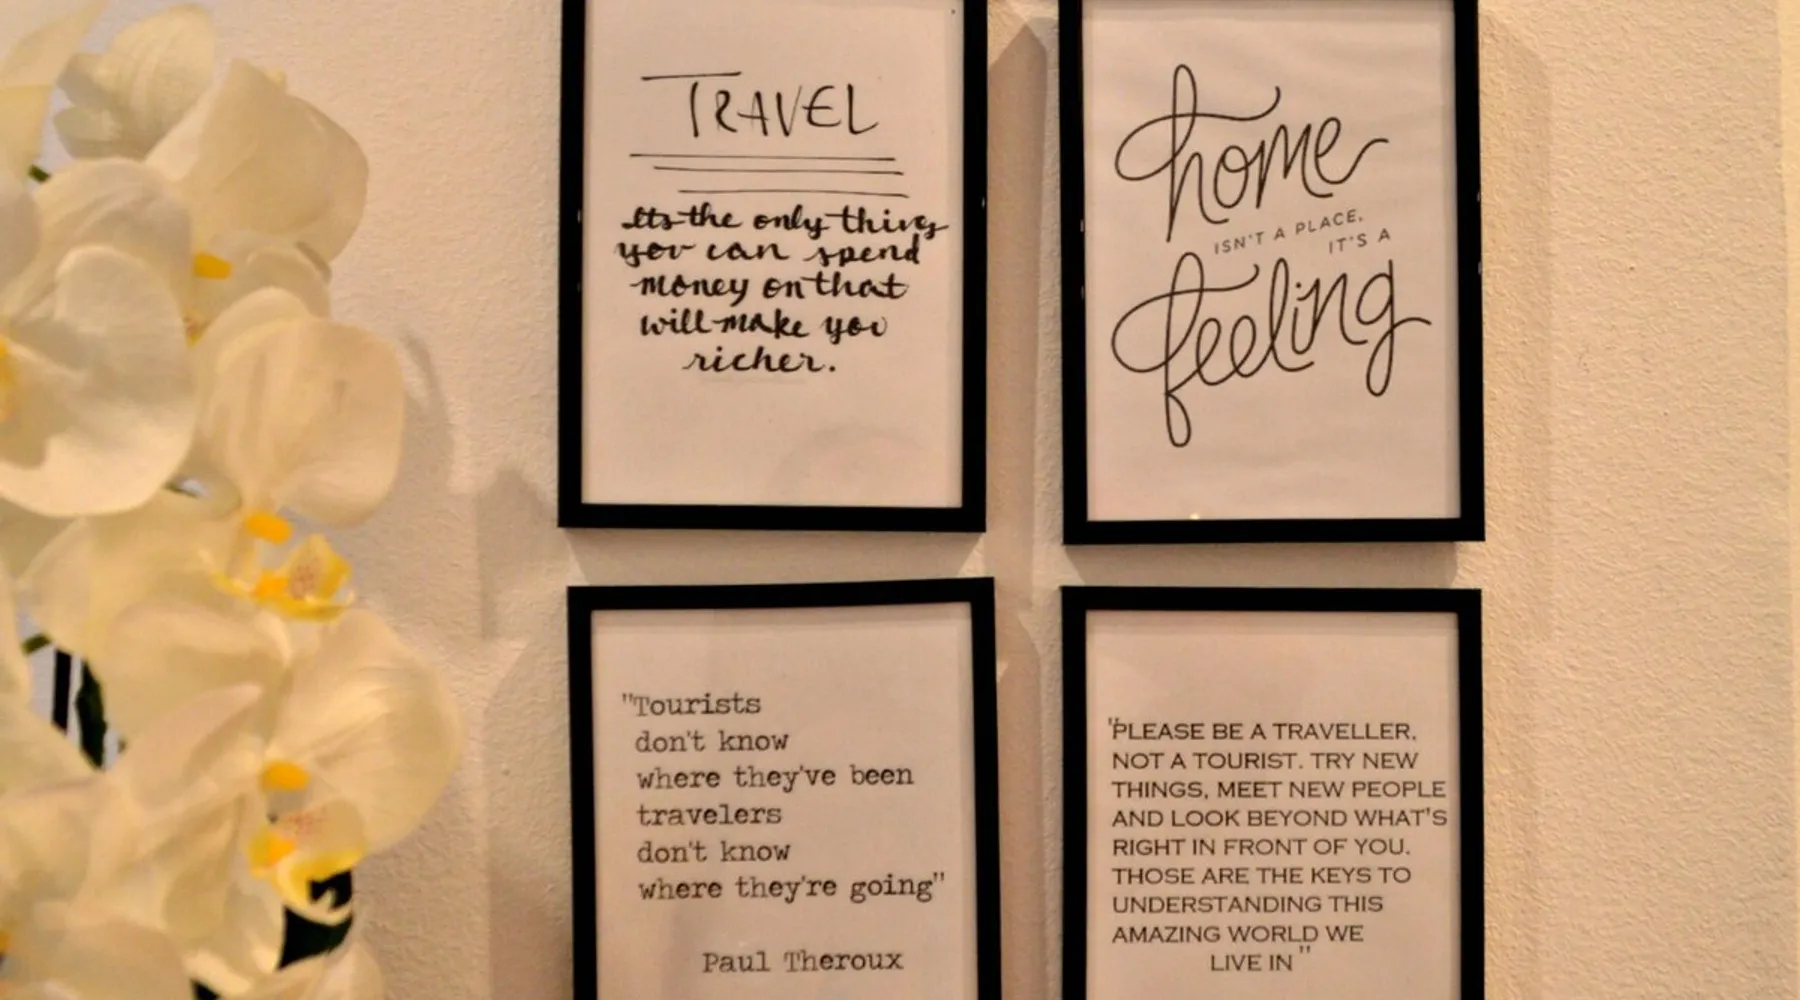 TRAVEL
Its the only thing
you can spend
money on that
will make you
richer.
home
ISN'T A PLACE,
IT'S A
feeling
"Tourists
don't know
where they've been
travelers
don't know
where they're going"
Paul Theroux
"PLEASE BE A TRAVELLER,
NOT A TOURIST. TRY NEW
THINGS, MEET NEW PEOPLE
AND LOOK BEYOND WHAT'S
RIGHT IN FRONT OF YOU.
THOSE ARE THE KEYS TO
UNDERSTANDING THIS
AMAZING WORLD WE
LIVE IN"